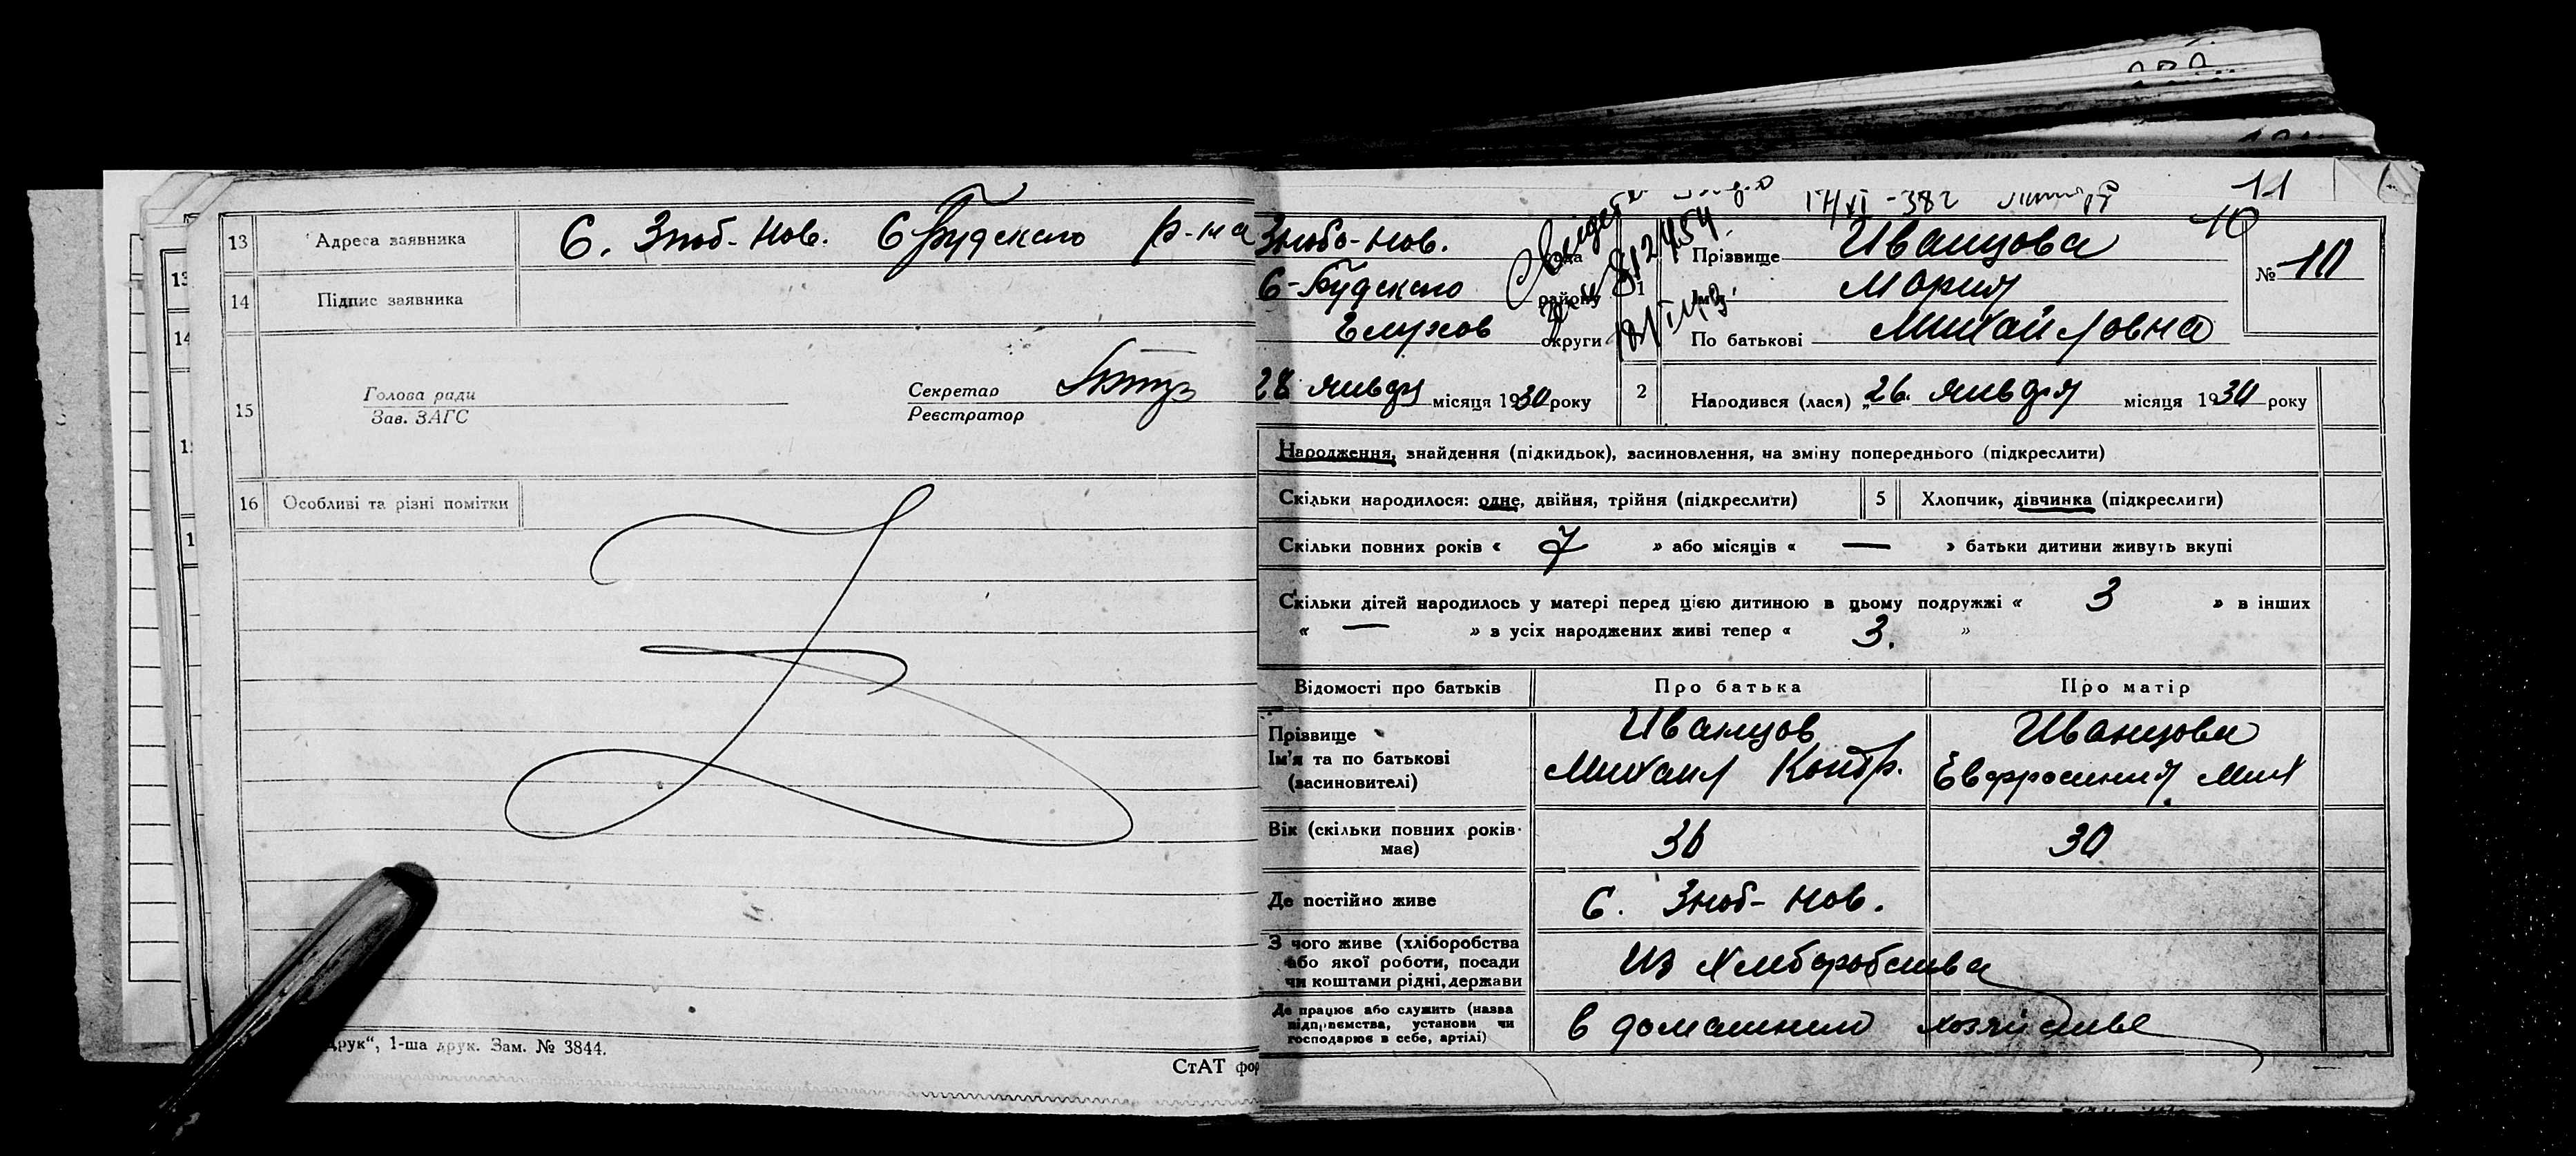 13 Адреса заявника С. Зноб-Нов. С Будского р-на
14 Підпис заявника
15 Голова ради
Зав. ЗАГС
Секретар
Реєстратор
16 Особливі та різні помітки
Друк“, 1-ша друк. Зам. № 3844.
СтАТ фор
11
10
Знобо-Нов.
С-Будского району
Глухов округи
28 января місяця 1930 року
1 Прізвище Иванцова
Ім'я Мария
По батькові Михайловна
№ 10
2 Народився (лася) „26. января місяця 1930 року
Народження, знайдення (підкидьок), засиновлення, на зміну попереднього (підкреслити)
Скільки народилося: одне, двійня, трійня (підкреслити) 5 Хлопчик, дівчинка (підкреслити)
Скільки повних років « 7 » або місяців « — » батьки дитини живуть вкупі
Скільки дітей народилось у матері перед цією дитиною в цьому подружжі « 3 » в інших
« — » з усіх народжених живі тепер « 3. »
Відомості про батьків Про батька Про матір
Прізвище Иванцов Иванцова
Ім'я та по батькові Михаил Кондр. Евфросиния Мих
(засновителі)
Вік (скільки повних років має) 36 30
Де постійно живе С. Зноб-Нов.
З чого живе (хліборобства
або якої роботи, посади
чи коштами рідні, держави
из хлеборобства
Де працює або служить (назва
підприємства, установи чи
господарює в себе, артілі)
в домашнем хозяйстве